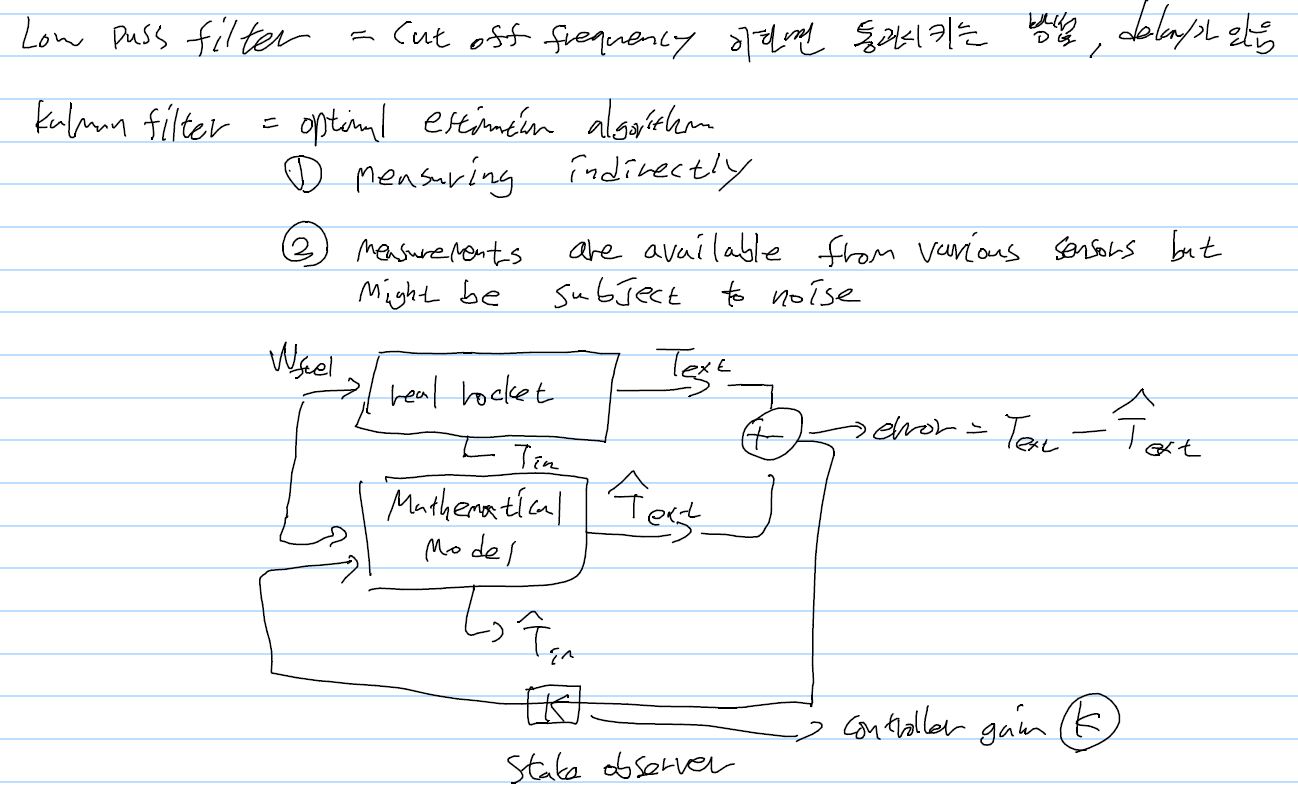 Low pass filter = Cut off frequency 이하만 통과시키는 방법, delay가 있음
Kalman filter = optimal estimation algorithm
① measuring indirectly
② measurements are available from various sensors but
might be subject to noise
Wfuel
real rocket
Text
Tin
+-
error = Text - T̂ext
Mathematical
Model
T̂ext
T̂in
K
controller gain K
State observer